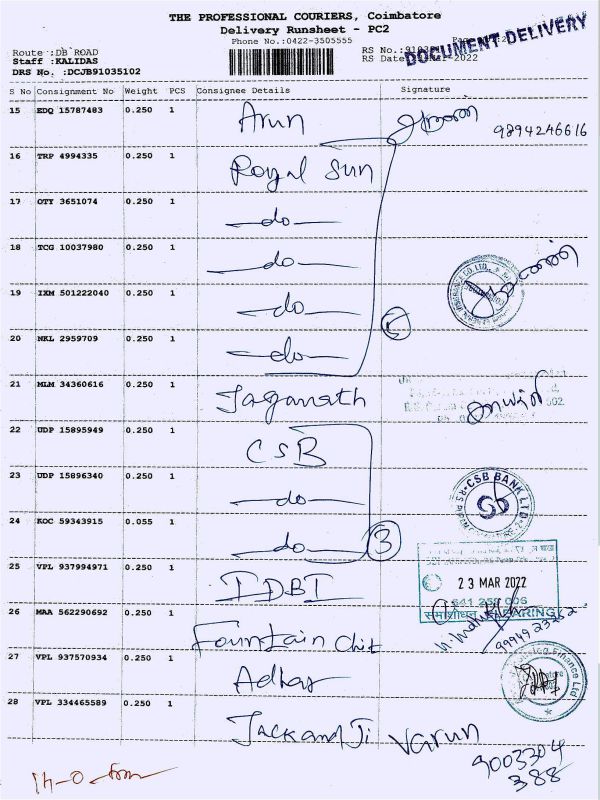 THE PROFESSIONAL COURIERS, Coimbatore
Delivery Runsheet - PC2
Phone No.:0422-3505555
Route :DB ROAD
Staff :KALIDAS
DRS No. :DCJB91035102
RS No.:
RS Date
DOCUMENT DELIVERY
S No Consignment No Weight PCS Consignee Details Signature
15 EDQ 15787483 0.250 1 Arun 9894246616
16 TRP 4994335 0.250 1 Royal Sun
17 OTY 3651074 0.250 1 do
18 TCG 10037980 0.250 1 do
19 IXM 501222040 0.250 1 do
20 NKL 2959709 0.250 1 do
21 MLM 34360616 0.250 1 Jaganath
22 UDP 15895949 0.250 1 CSB
23 UDP 15896340 0.250 1 do
CSB BANK LTD
24 KOC 59343915 0.055 1 do 3
25 VPL 937994971 0.250 1 IDBI
23 MAR 2022
समाशोधन CLEARING
26 MAA 562290692 0.250 1 Fountain Chit
27 VPL 937570934 0.250 1 Adhar
28 VPL 334465589 0.250 1 Jack and Ji Varun
9003304
388